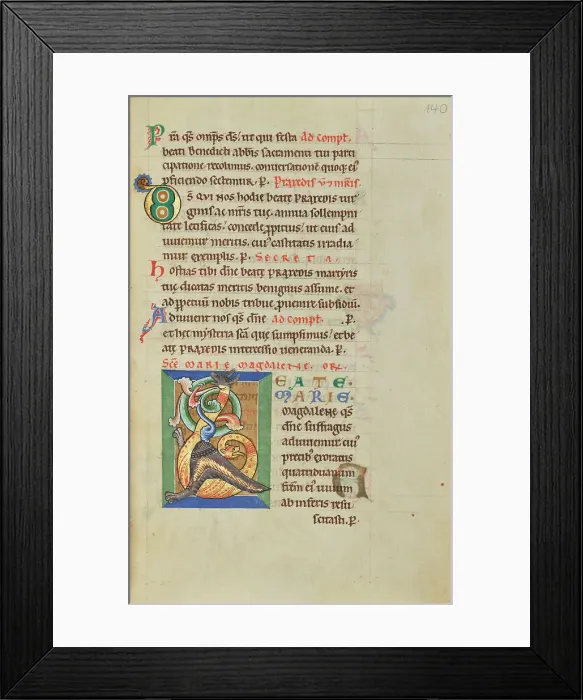 140
P rm̄ qs̄ omp̄s ds̄ / ut qui festa Ad compt̄.
beati Benedicti abbis sacramenti tui parti
cipatione recolimus. conversationē quoq; ei'
p̄ficiendo sectemur. P.
Ds̄ QVI NOS hodie beatę PRAXEDIS vir
ginis ac m̄ris tuę. annua sollempni
tate lętificas / concede p̄pitius / ut eius ad
iuvemur meritis. cui' castitatis irradia
mur exemplis. P. SECRETA.
hostias tibi dn̄e beatę PRAXEDIS martyris
tuę dicatas meritis benignus assume. et
ad p̄petuū nobis tribue p̄venire subsidiū.
Adiuvent nos qs̄ dn̄e Ad compt̄. .P.
et hęc mysteria sc̄a quę sumpsimus / et be
atę PRAXEDIS intercessio veneranda. P.
SC̄E MARIE MAGDALENE. OR̄.
BEATE
MARIE.
magdalene qs̄
dn̄e suffragiis
adiuvemur cui'
precib' exoratus
quatriduanum
frēm ei' vivum
ab inferis resu
scitasti. P.